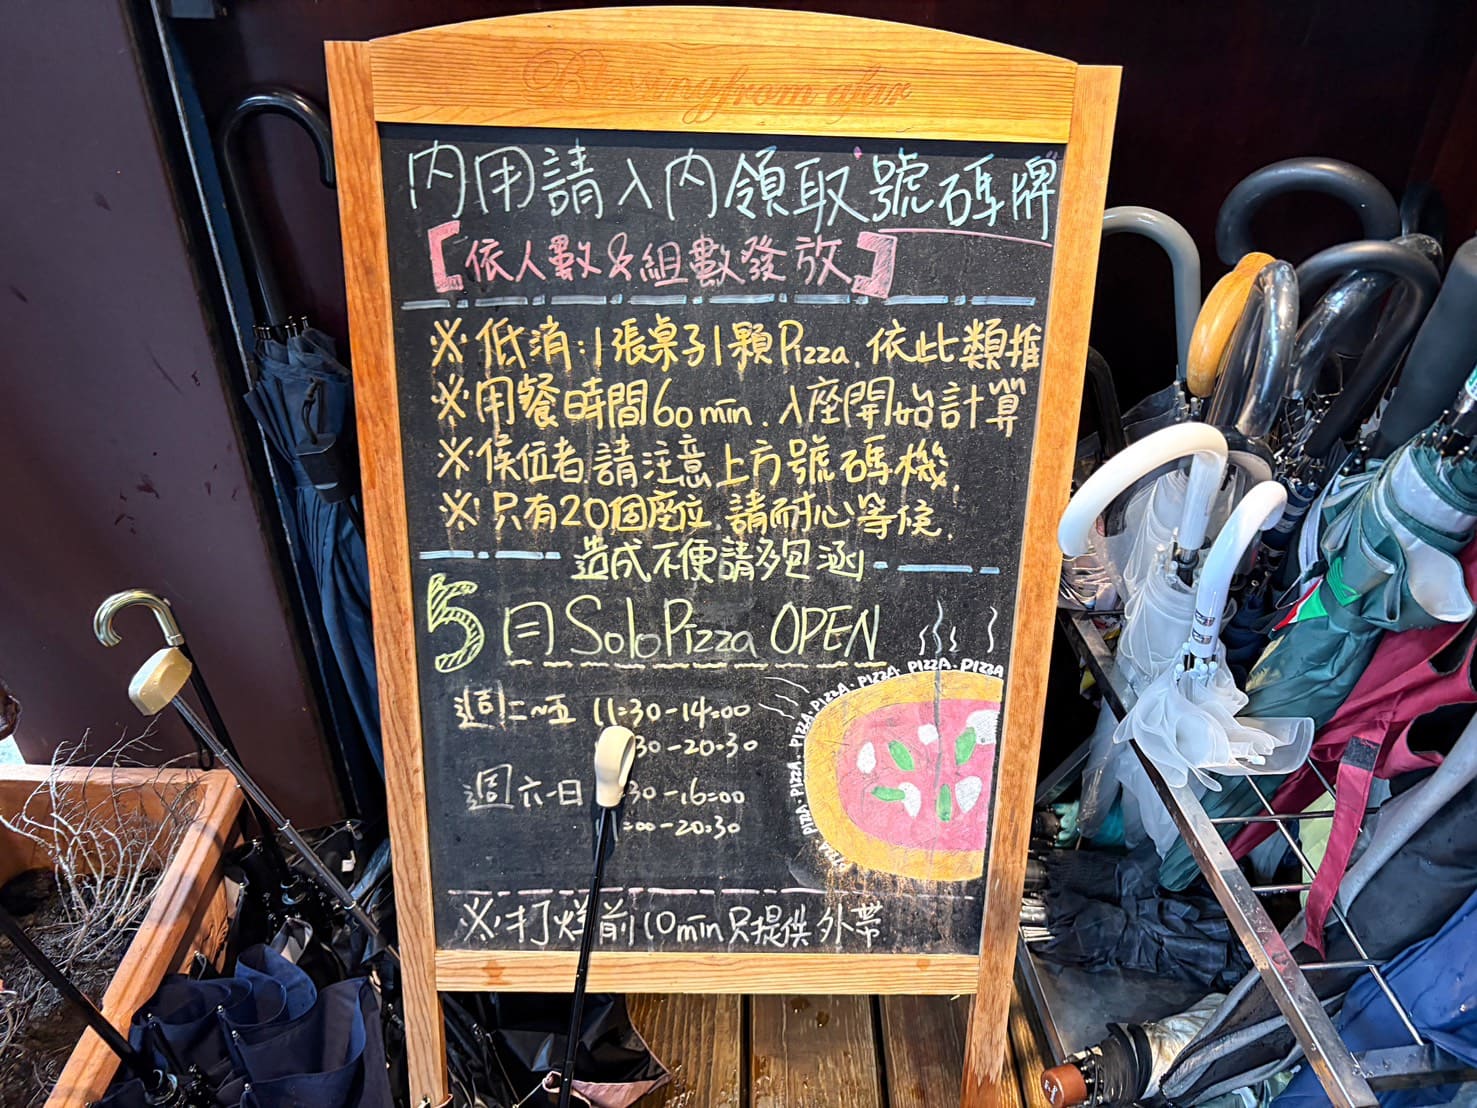 Blessing from afar
內用請入內領取號碼牌
【依人數&組數發放】
※低消:1張桌子1顆Pizza.依此類推
※用餐時間60min.入座開始計算
※候位者.請注意上方號碼機.
※只有20個座位.請耐心等候.
造成不便請多包涵
5月 Solo Pizza OPEN
週二~五 11:30-14:00
30-20:30
週六-日 30-16:00
:00-20:30
PIZZA.PIZZA.PIZZA.PIZZA.PIZZA.PIZZA.PIZZA.PIZZA
※打烊前10min只提供外帶